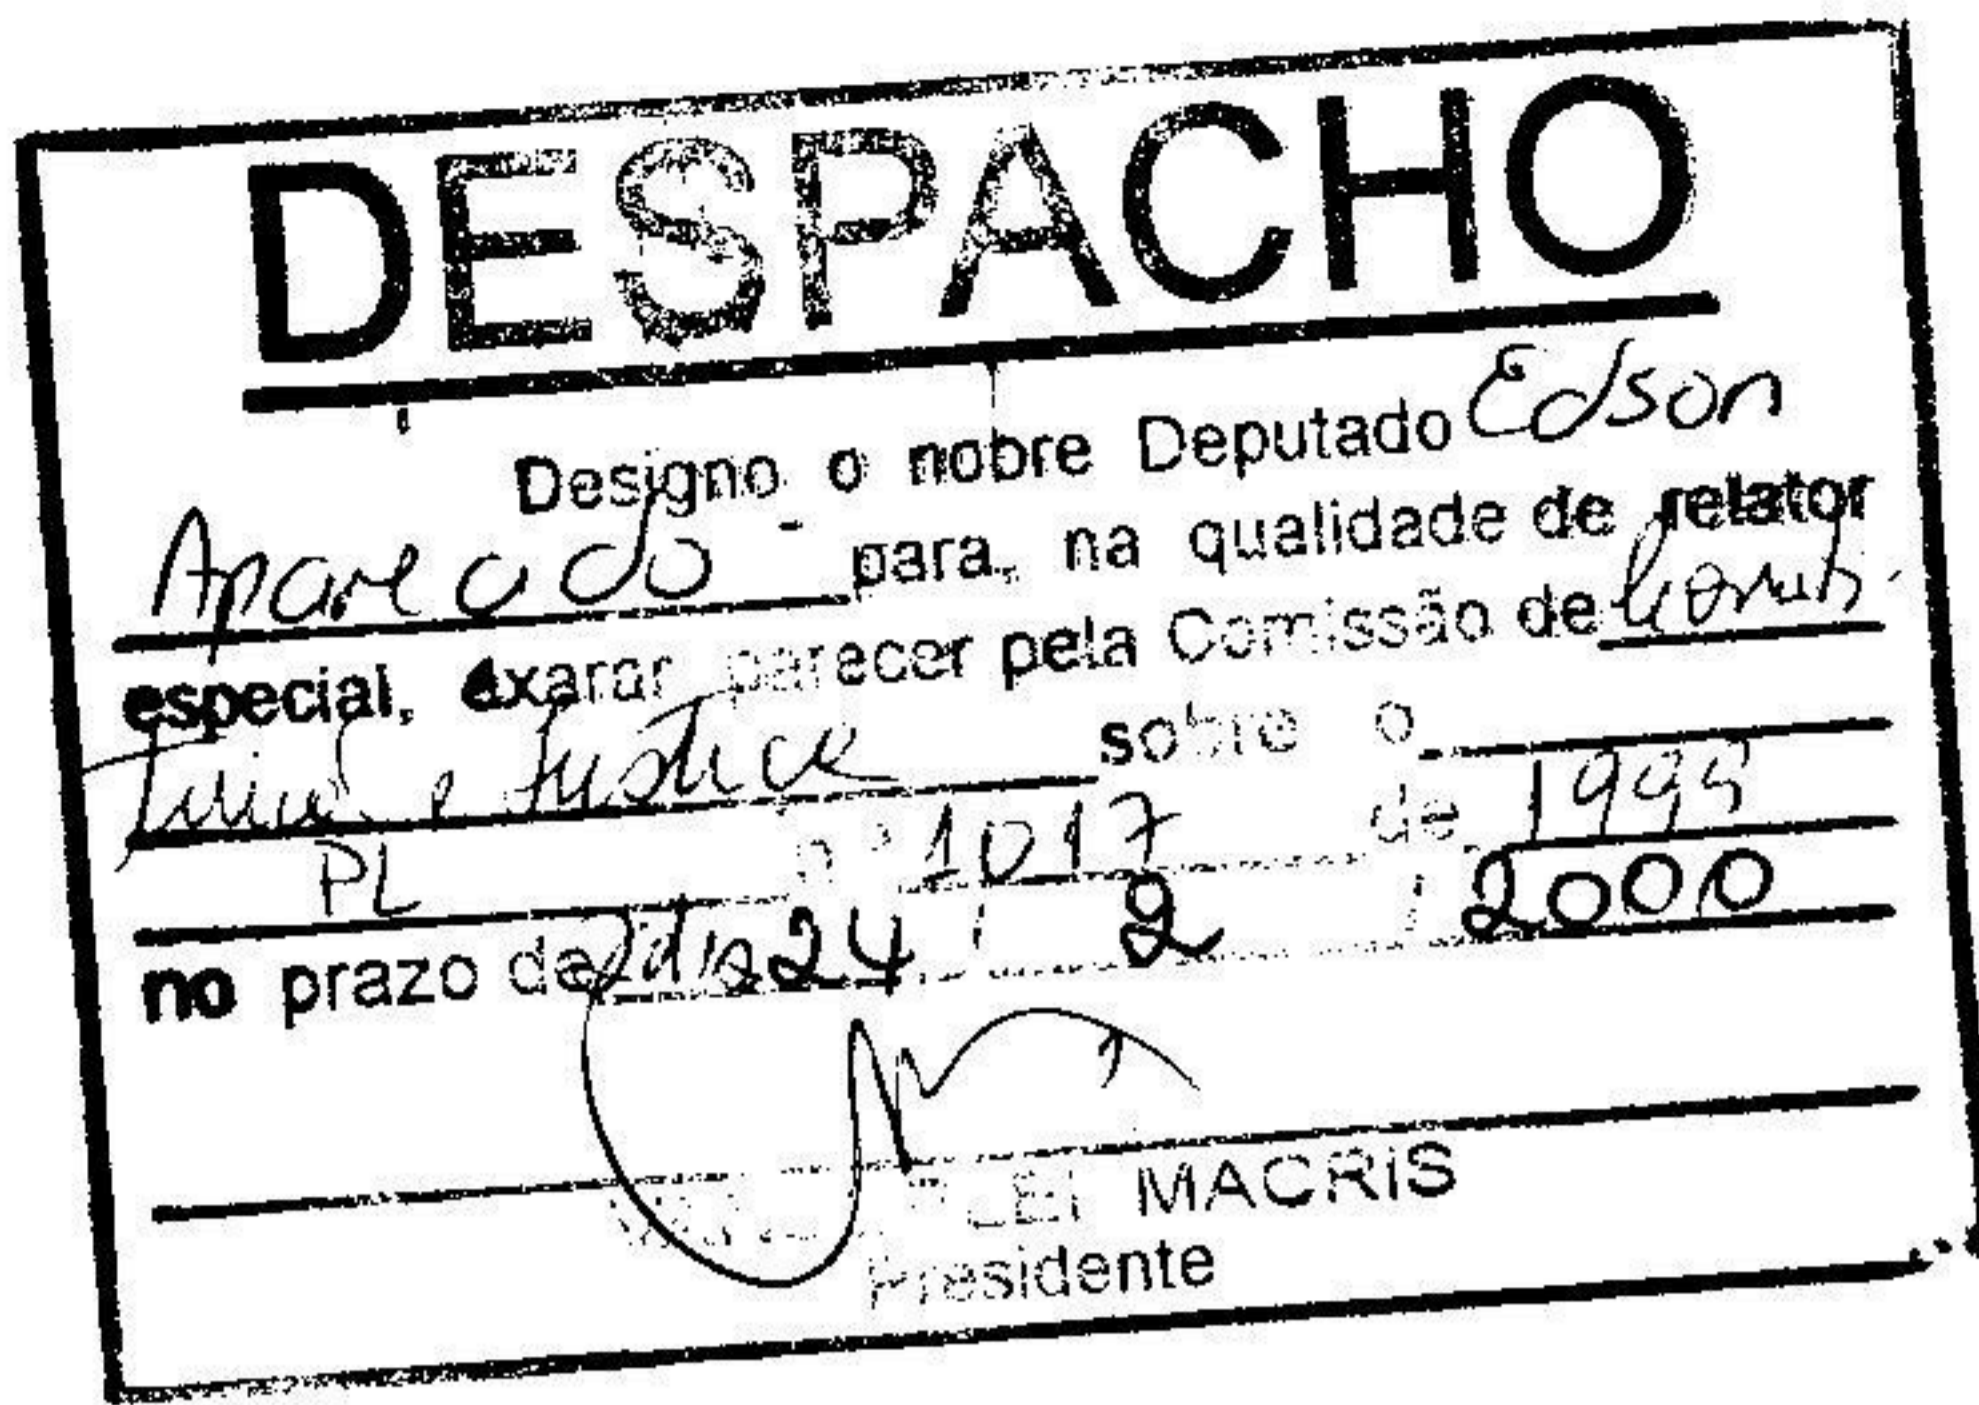 DESPACHO
Designo o nobre Deputado Edson
Aparecido - para, na qualidade de relator
especial, exarar parecer pela Comissão de Consti-
tuição e Justiça sobre o
PL nº 1017 de 1999
no prazo de 2 dias 24 / 2 / 2000
MACRIS
Presidente